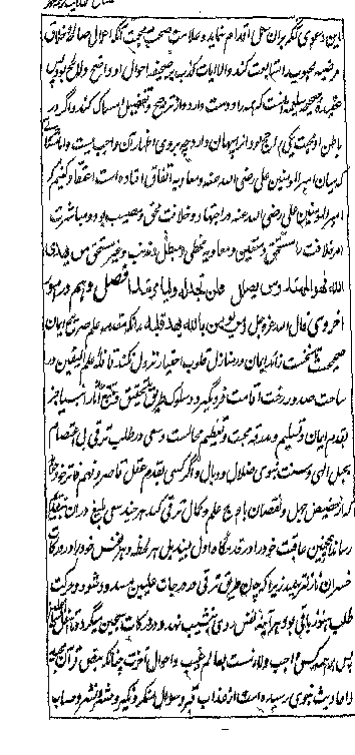 این دعوی اگر بران عمل اقدام نماید و علامت صحت محبت آنکه احوال صالحه و اخلاق
مرضیه محبوب را متابعت کند و الا امارات کذب بر صحیفه احوال او واضح و لائح بود پس
عقیده صحیحه سلیمه آنست که همه را دوست دارد و از ترجیح و تفضیل امساک کند و اگر در
باطن او محبت یکی راجح بود از پنهان دارد چه بر وی اظهار آن واجب نیست و اما
که میان امیر المؤمنین علی رضی الله عنه و معاویه اتفاق افتاده است اعتقاد کنیم که
امیر المؤمنین علی رضی الله عنه در اجتهاد و خلافت محق و مصیب بود و مباشرت
امر خلافت را مستحق و متعین و معاویه مخطی و مبطل و غیر مستحق من یهدی
الله فهو المهتد و من یضلل فلن تجد له ولیا مرشدا فصل و هم در امور
اخروی قال الله عز و جل و من یؤمن بالله یهد قلبه بدانکه مقدمه علم صریح ایمان
صحیحست تا نخست زائد ایمان در منازل قلوب اختیار نزول نکند قائد علم الیقین در
ساحت صدور رخت اقامت فرو نگیرد و سلوک طریق تحقیق و تتبع آثار انبیا جز
بقدم ایمان و تسلیم و بدرقه محبت و تعظیم محالست و سعی در طلب ترقی بی اعتصام
بحبل الهی و سنت نبوی ضلال و وبال و اگر کسی بقدم عقل قاصر و فهم فاتر خود
که از حضیض جهل و نقصان بام اوج علم و کمال ترقی کند هر چند سعی بلیغ دران
رساند همچنین عاقبت خود را در قدمگاه اول بیند بلی هر لحظه و هر نفس خود را در درکات
خسران نازلتر بیند زیرا که چون طریق ترقی در درجات علیین مسدود شود و حرکت
طلب هنوز باقی بود هر آینه نفس روی بنشیب نهد و در درکات سجین میگردد
پس بر همه کس واجب و لازمست بعالم غیب و احوال آخرت چنانکه بنص قرآن مجید
و احادیث نبوی رسیده است از عذاب قبر و سؤال منکر و نکیر و حشر و نشر و حساب